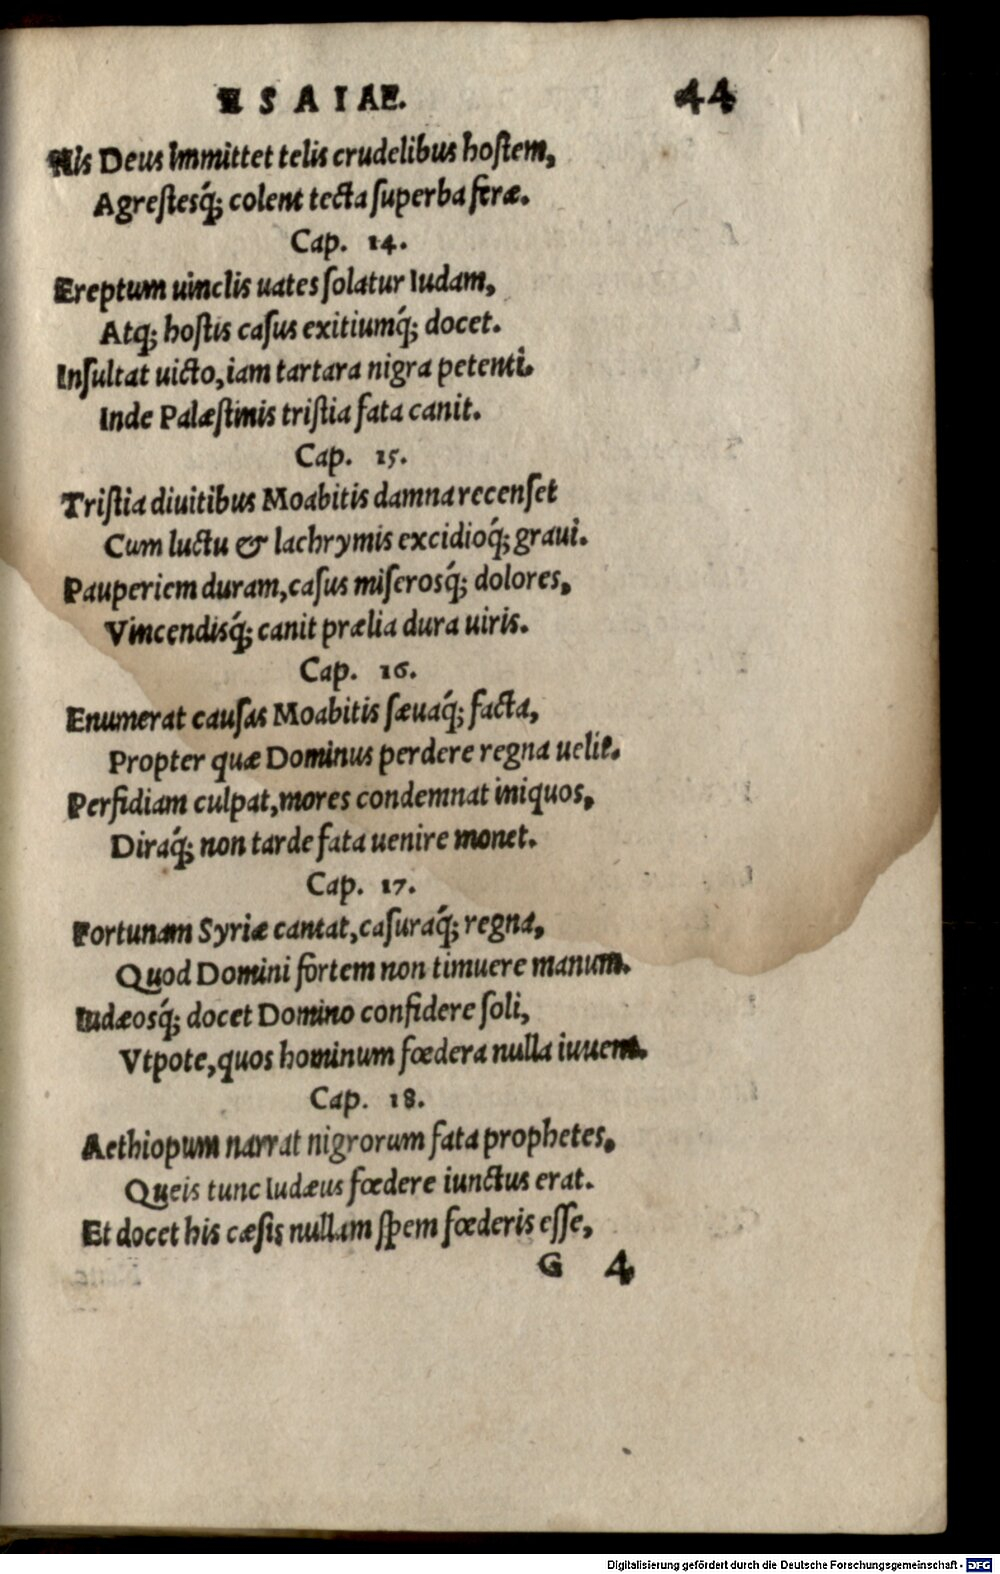 ESAIAE. 44
His Deus immittet telis crudelibus hoſtem,
Agreſtesq́; colent tecta ſuperba feræ.
Cap. 14.
Ereptum uinclis uates ſolatur Iudam,
Atq; hoſtis caſus exitiumq́; docet.
Inſultat uicto, iam tartara nigra petenti.
Inde Palæſtinis triſtia fata canit.
Cap. 15.
Triſtia diuitibus Moabitis damna recenſet
Cum luctu & lachrymis excidioq́; graui.
Pauperiem duram, caſus miſerosq́; dolores,
Vincendisq́; canit prælia dura uiris.
Cap. 16.
Enumerat cauſas Moabitis ſæuaq́; facta,
Propter quæ Dominus perdere regna uelit.
Perfidiam culpat, mores condemnat iniquos,
Diraq́; non tarde fata uenire monet.
Cap. 17.
Fortunam Syriæ cantat, caſuraq́; regna,
Quod Domini fortem non timuere manum.
Iudæosq́; docet Domino confidere ſoli,
Vtpote, quos hominum fœdera nulla iuuent.
Cap. 18.
Aethiopum narrat nigrorum fata prophetes,
Queis tunc Iudæus fœdere iunctus erat.
Et docet his cæſis nullam ſpem fœderis eſſe,
G 4
Digitalisierung gefördert durch die Deutsche Forschungsgemeinschaft - DFG